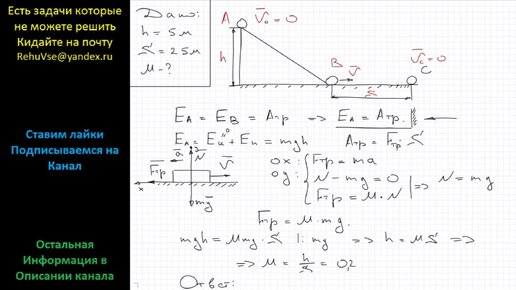 Есть задачи которые
не можете решить
Кидайте на почту
RehuVse@yandex.ru
Ставим лайки
Подписываемся на
Канал
Остальная
Информация в
Описании канала
Дано:
h = 5м
S = 25м
μ - ?
A V₀ = 0
h
B V
C V_C = 0
S
E_A = E_B = Aтр => E_A = Aтр.
E_A = E_к^"0 + E_п = mgh Aтр = Fтр · S
a N V
Fтр
x mg
ox: Fтр = ma
oy: N - mg = 0
Fтр = μ · N => N = mg
Fтр = μ · mg.
mgh = μmg · S |: mg => h = μS =>
=> μ = h/S = 0,2
Ответ: